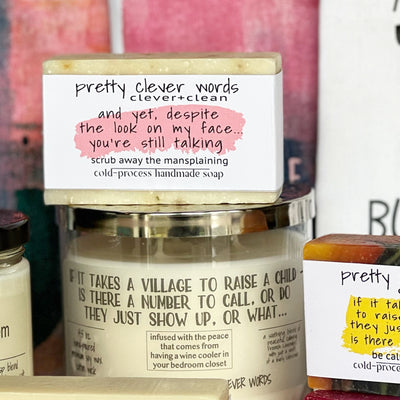 pretty clever words
clever+clean
and yet, despite
the look on my face...
you're still talking
scrub away the mansplaining
cold-process handmade soap
IF IT TAKES A VILLAGE TO RAISE A CHILD
IS THERE A NUMBER TO CALL, OR DO
THEY JUST SHOW UP, OR WHAT...
infused with the peace
that comes from
having a wine cooler in
your bedroom closet
EVER WORDS
pretty
if it tak
to raise
they jus
is there
be cal
cold-proces
om